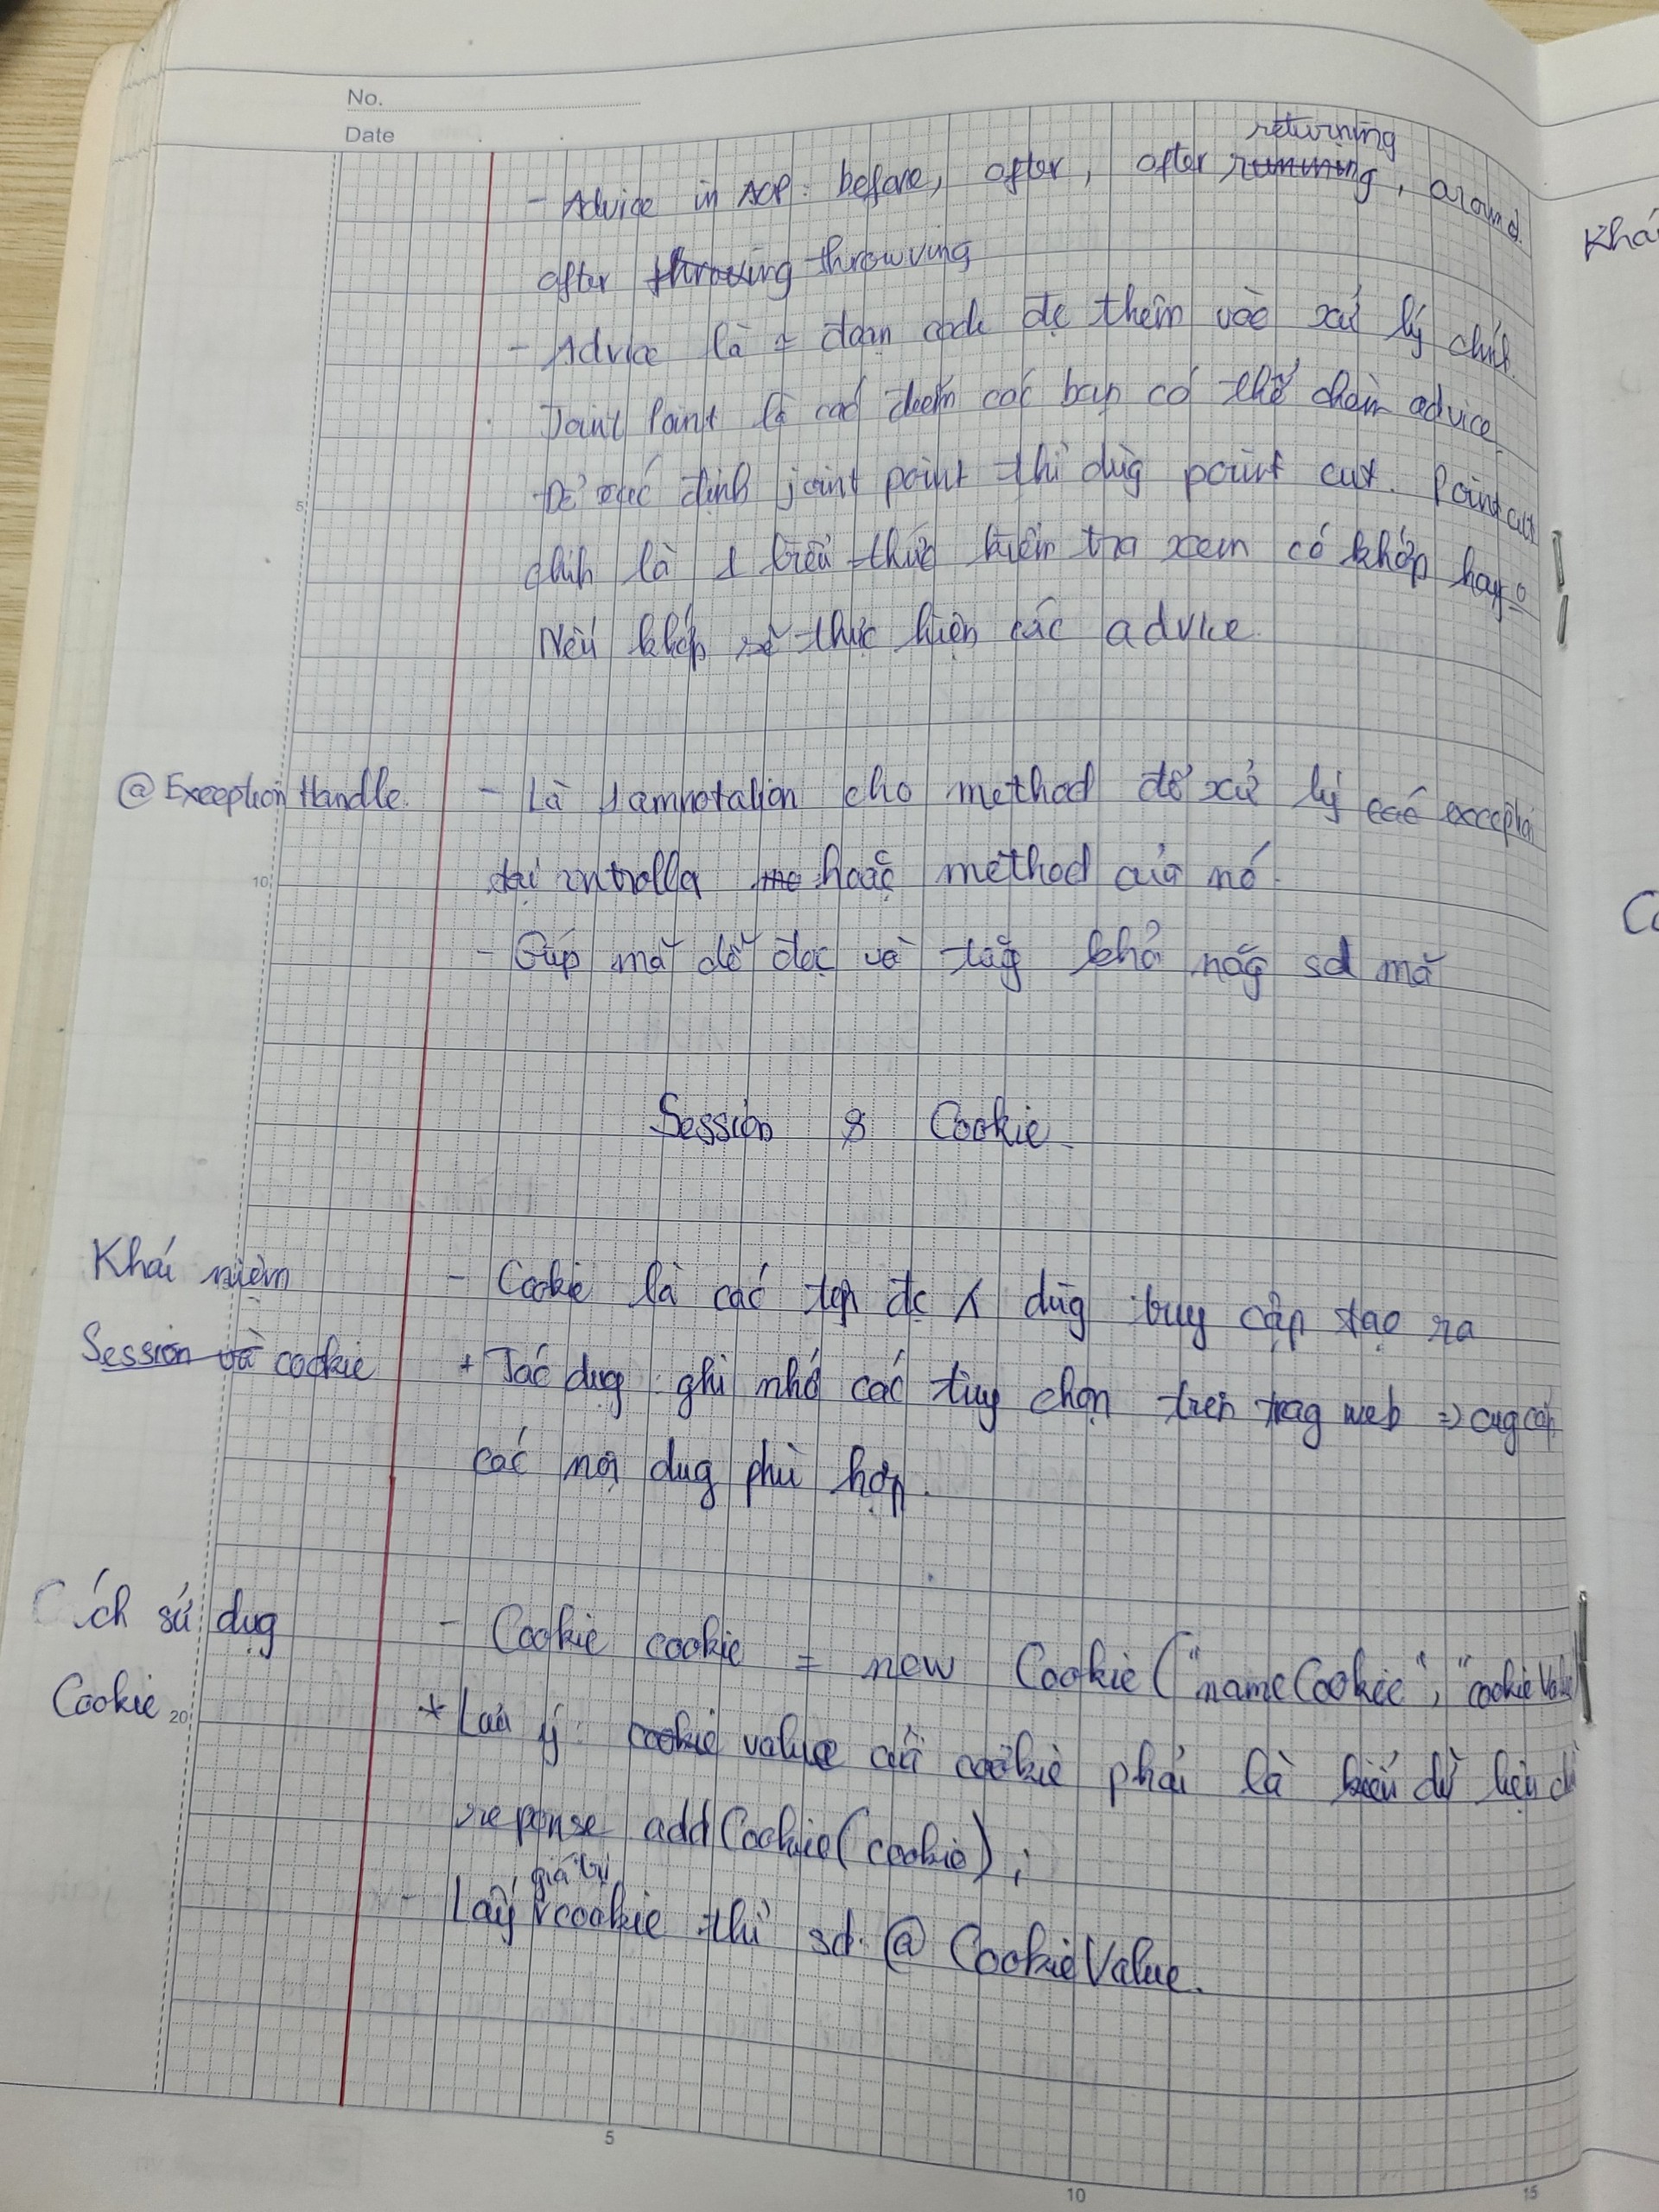 No.
Date
- Advice in AOP: before, after, after running returning, around.
after throwing throwving
- Advice là 1 đoạn code đc thêm vào xử lý chính.
Joint Point là các điểm các bạn có thể chèn advice
Để xác định joint point thì dùg point cut. Point cut
chính là 1 biểu thức kiểm tra xem có khớp hay 0
Nếu khớp sẽ thực hiện các advice.
@ Exception Handle. - Là 1 amnotation cho method để xử lý các exception
tại controlla hoặc method của nó.
- Giúp mã dễ đọc và tăg khả năg sd mã
Session & Cookie
Khái niệm - Cookie là các tệp đc dùg truy cập tạo ra
Session và cookie + Tác dụg: ghi nhớ các tùy chọn trên trag web => cug cấp
các nội dug phù hợp.
Cách sử dụg - Cookie cookie = new Cookie("nameCookie", "cookieValue
Cookie * Lưu ý: cookie value của cookie phải là kiểu dữ liệu
reponse addCookie(cookie);
- Lấy giá trị cookie thì sd @ CookieValue.
Khá
5
10
20
5
10
15